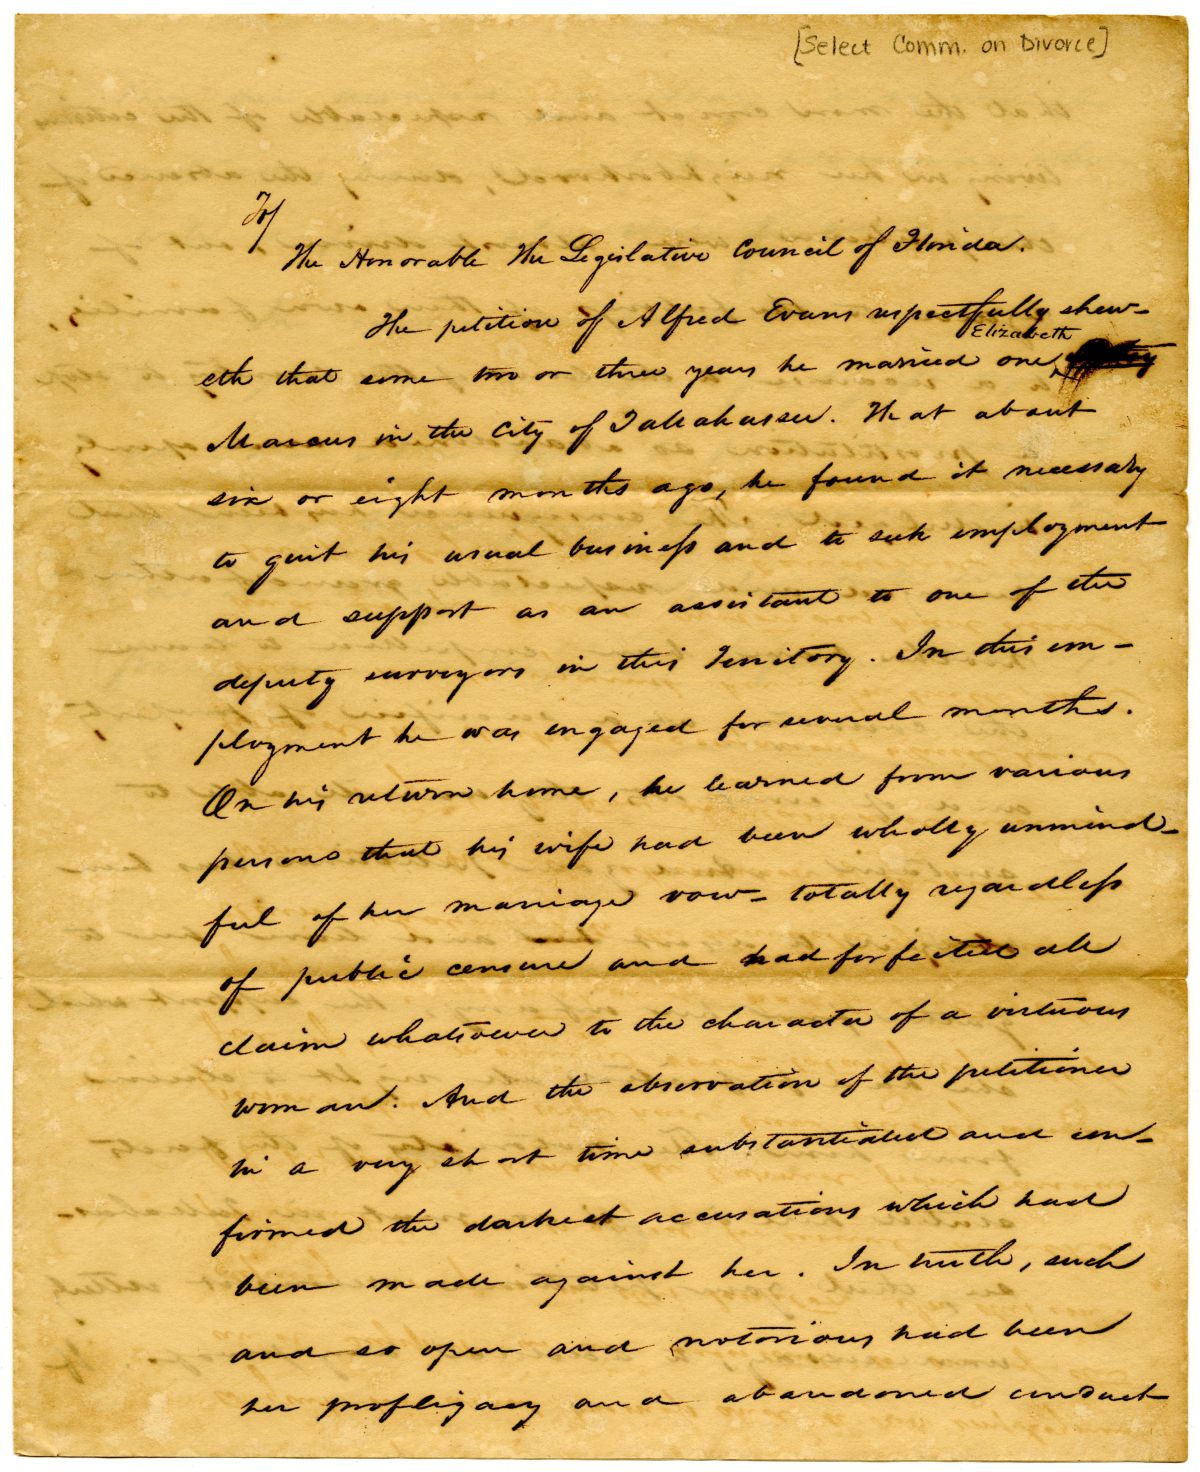 [Select Comm. on Divorce]
To/
The Honorable The Legislative Council of Florida.
The petition of Alfred Evans respectfully shew-
Elizabeth
eth that some two or three years he married one
Marcus in the City of Tallahassee. That about
six or eight months ago, he found it necessary
to quit his usual business and to seek employment
and support as an assistant to one of the
deputy surveyors in this Territory. In this em-
ployment he was engaged for several months.
On his return home, he learned from various
persons that his wife had been wholly unmind-
ful of her marriage vow - totally regardless
of public censure and had forfeited all
claim whatsoever to the character of a virtuous
woman. And the observation of the petitioner
in a very short time substantiated and con-
firmed the darkest accusations which had
been made against her. In truth, such
and so open and notorious had been
her profligacy and abandoned conduct